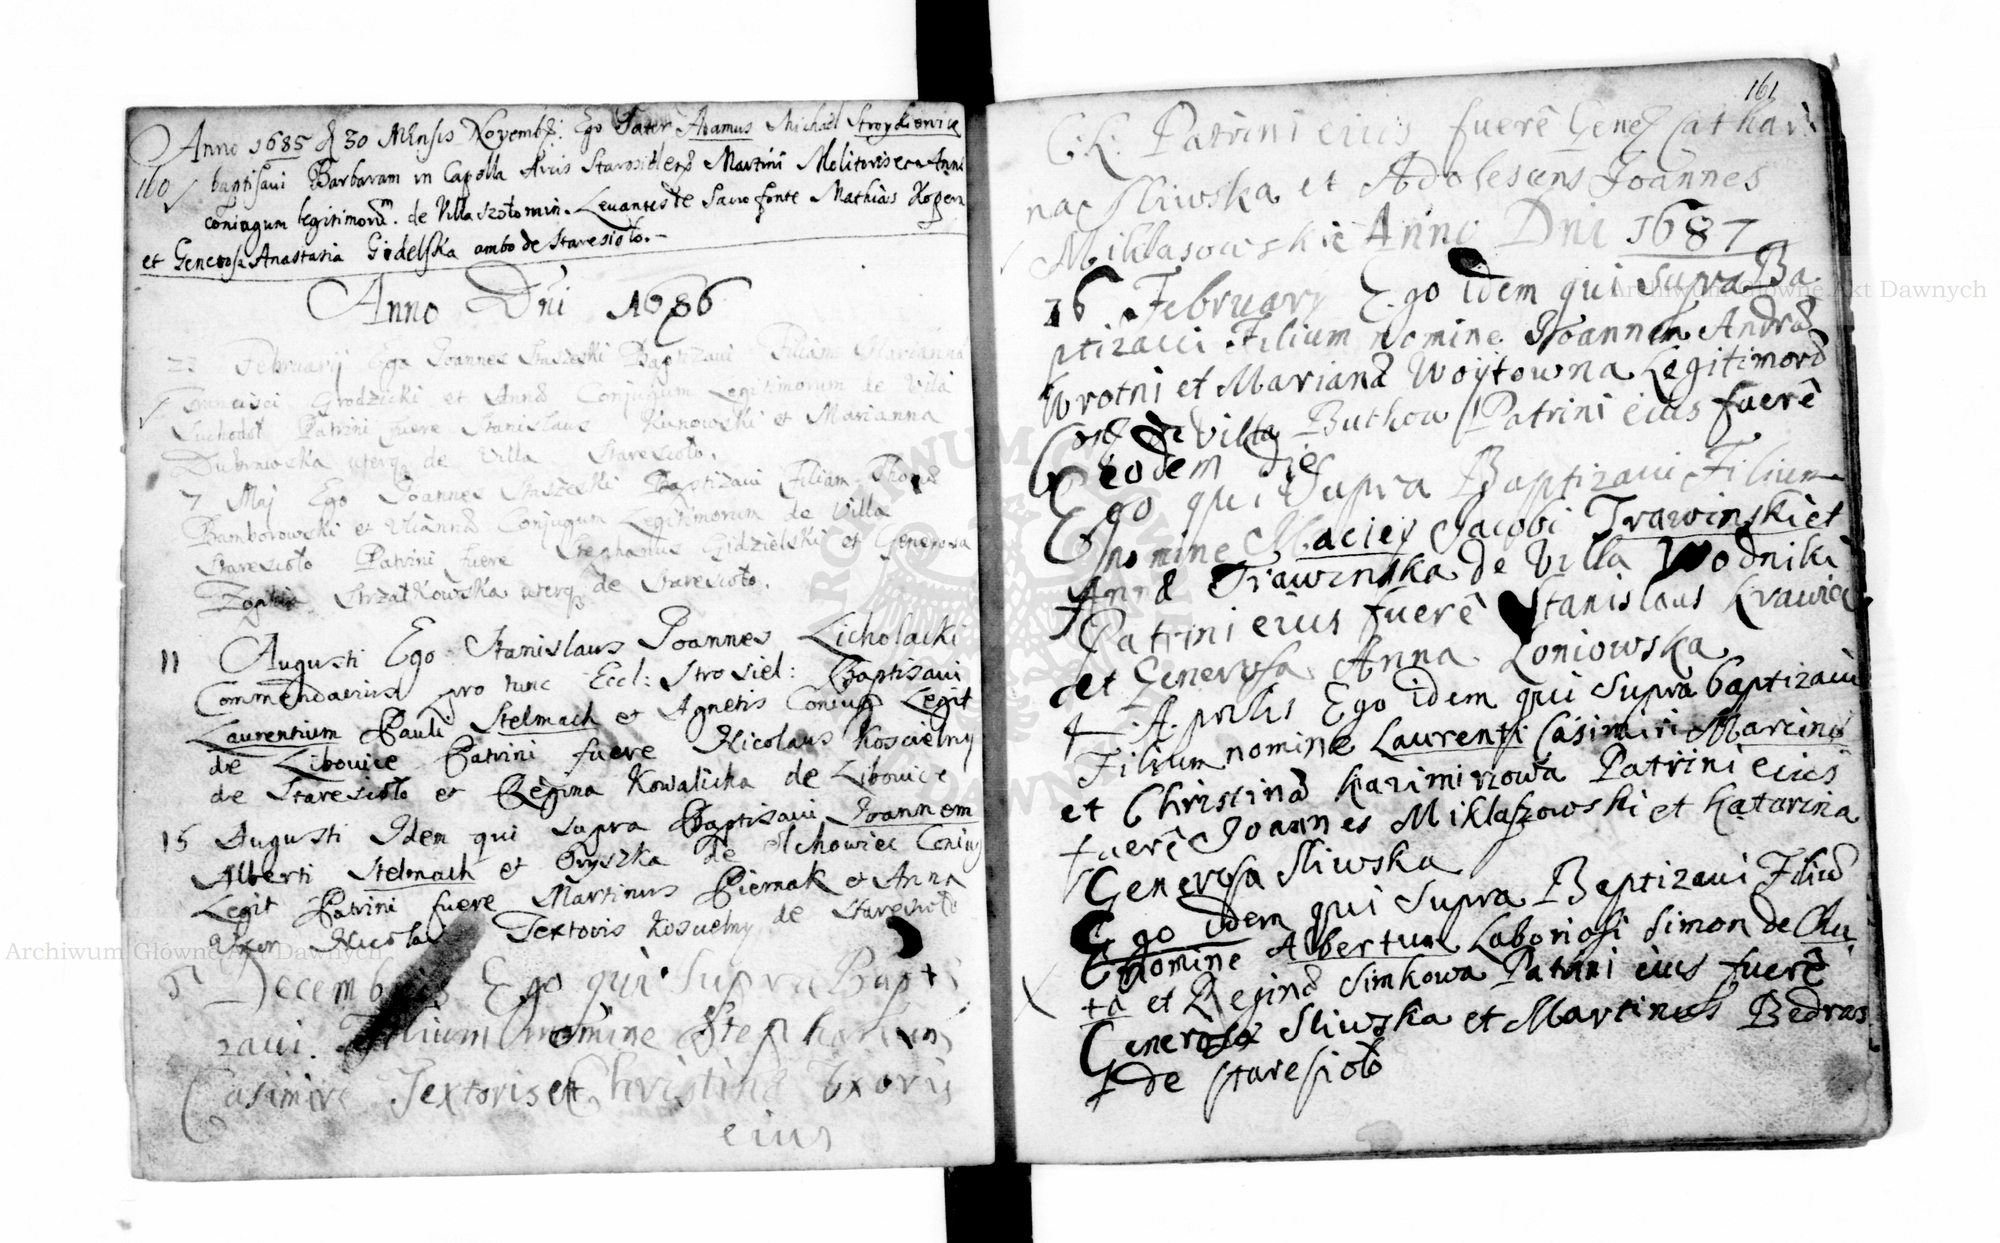 Anno 1685 d 30 Mensis Novemb: Ego Pater Adamus Michael Stroykiewicz
160 baptisavi Barbaram in Capella Arcis Martini Molitoris et Anna
coniugum legitimor. de Villa Szołomin. Levantes de Sacro fonte Mathias
et Generosa Anastasia Gidelska ambo de Staresioło.
Anno Dni 1686
23 Februarij Ego Joannes Staszeski Baptizavi Filiam Mariannā
Francisci Grodzicki et Annæ Conjugum Legitimorum de Villa
Suchodoł Patrini fuere Stanislaus Kunowski et Marianna
Dubrawska uterq de Villa Staresioło.
7 Maj Ego Joannes Staszeski Baptizavi Filiam
Bamborowski et Conjugum Legitimorum de Villa
Staresioło Patrini fuere Stephanus Gidzielski et Generosa
Zophia Strzałkowska uterq de Staresioło.
11 Augusti Ego Stanislaus Joannes Licholacki
Commendarius pro tunc Eccl: Strosiel: Baptisavi
Laurentium Pauli Stelmach et Agnetis Coniug Legit
de Libowice Patrini fuere Nicolaus Koscielny
de Staresioło et Regina Kowalicha de Libowice
15 Augusti Idem qui supra Baptisavi Joannem
Alberti Stelmach et Oryszka de Olchowiec Coniug
Legit Patrini fuere Martinus Piernak et Anna
Uxor Nicolai Textoris Koscielny de Staresioło
Decembris Ego qui Supra Bapti
zavi. Filium nomine Stephanum
Casimiri Textoris et Christinæ Uxoris
eius
161
C. L. Patrini eius fuerê Genes Cathari
na Sliwska et Adolescens Joannes
Miklasowskie Anno Dni 1687
26 February Ego idem qui supra Ba
ptizavi Filium nomine Joannem Andræ
Wrotni et Mariannæ Woytowna Legitimorū
de Villa Buthow Patrini eius fuerê
eodem die
Ego qui Supra Baptizavi Filium
nomine Maciey Jacobi Trawinski et
Annæ Trawinska de Villa Wodniki
Patrini eius fuerê Stanislaus Krawiec
et Generosa Anna Loniowska
4 Aprilis Ego idem qui supra baptizavi
Filium nomine Laurenti Casimiri Marcina
et Christinæ Kazimirzowa Patrini eius
fuerê Joannes Miklaszowski et Katarina
Generosa Sliwska
Ego idem qui supra Baptizavi Filiū
nomine Albertum Laboriosi Simon de Chu
ta et Reginæ Simkowa Patrini eius fuerê
Generosa Sliwska et Martinus Bedras
de Staresioło
Archiwum Główne Akt Dawnych
Archiwum Główne Akt Dawnych